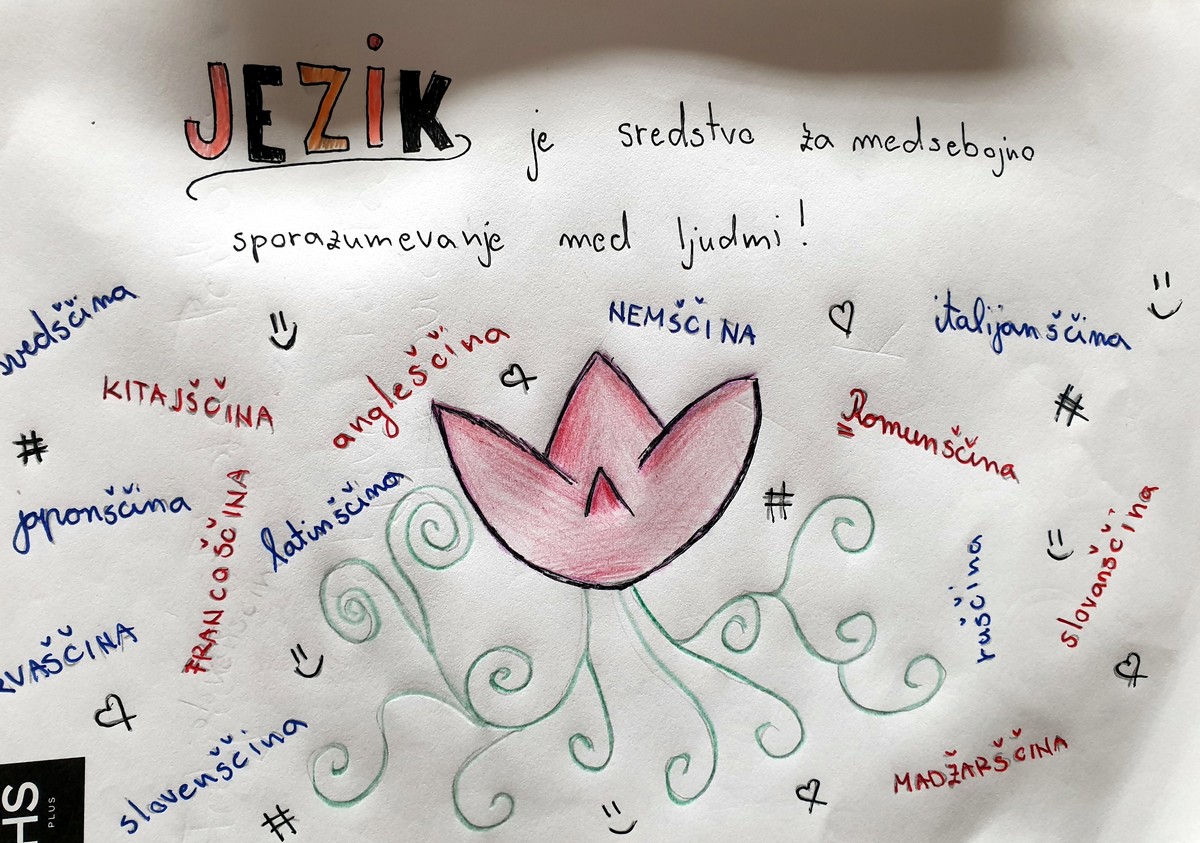 JEZIK je sredstvo za medsebojno
sporazumevanje med ljudmi!
švedščina
KITAJŠČINA
angleščina
NEMŠČINA
italijanščina
#
Romunščina
#
japonščina
FRANCAŠČINA
latinščina
#
ruščina
slovanščina
RVAŠČINA
slovenščina
#
MADŽARŠČINA
HS
PLUS